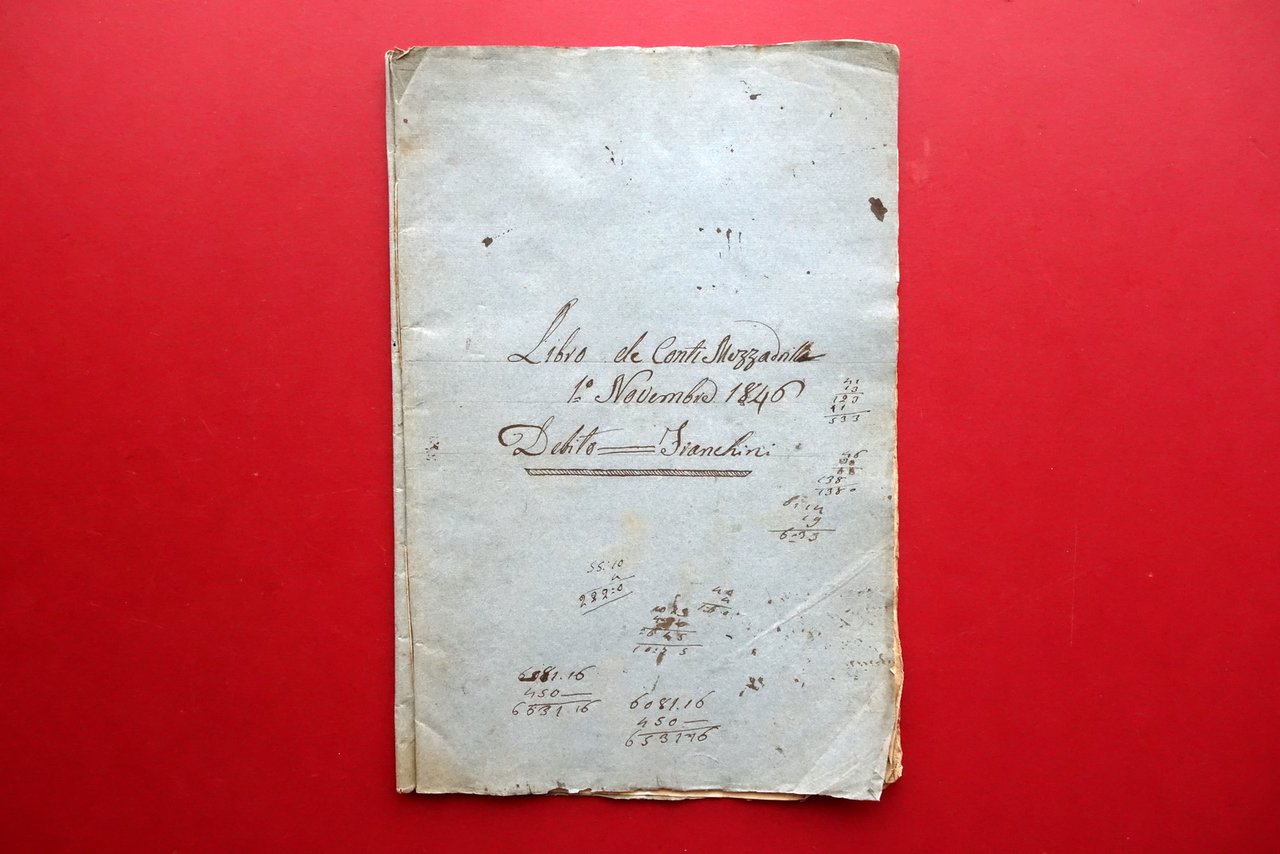 Libro de Conti Mezzadrilli
1.º Novembre 1846
Debito = Franchini
41
13
123
41
533
46
138
1380
19
6-33
55:10
222:0
40
4
160
6081.16
450—
6531.16
6081.16
450—
6531.16